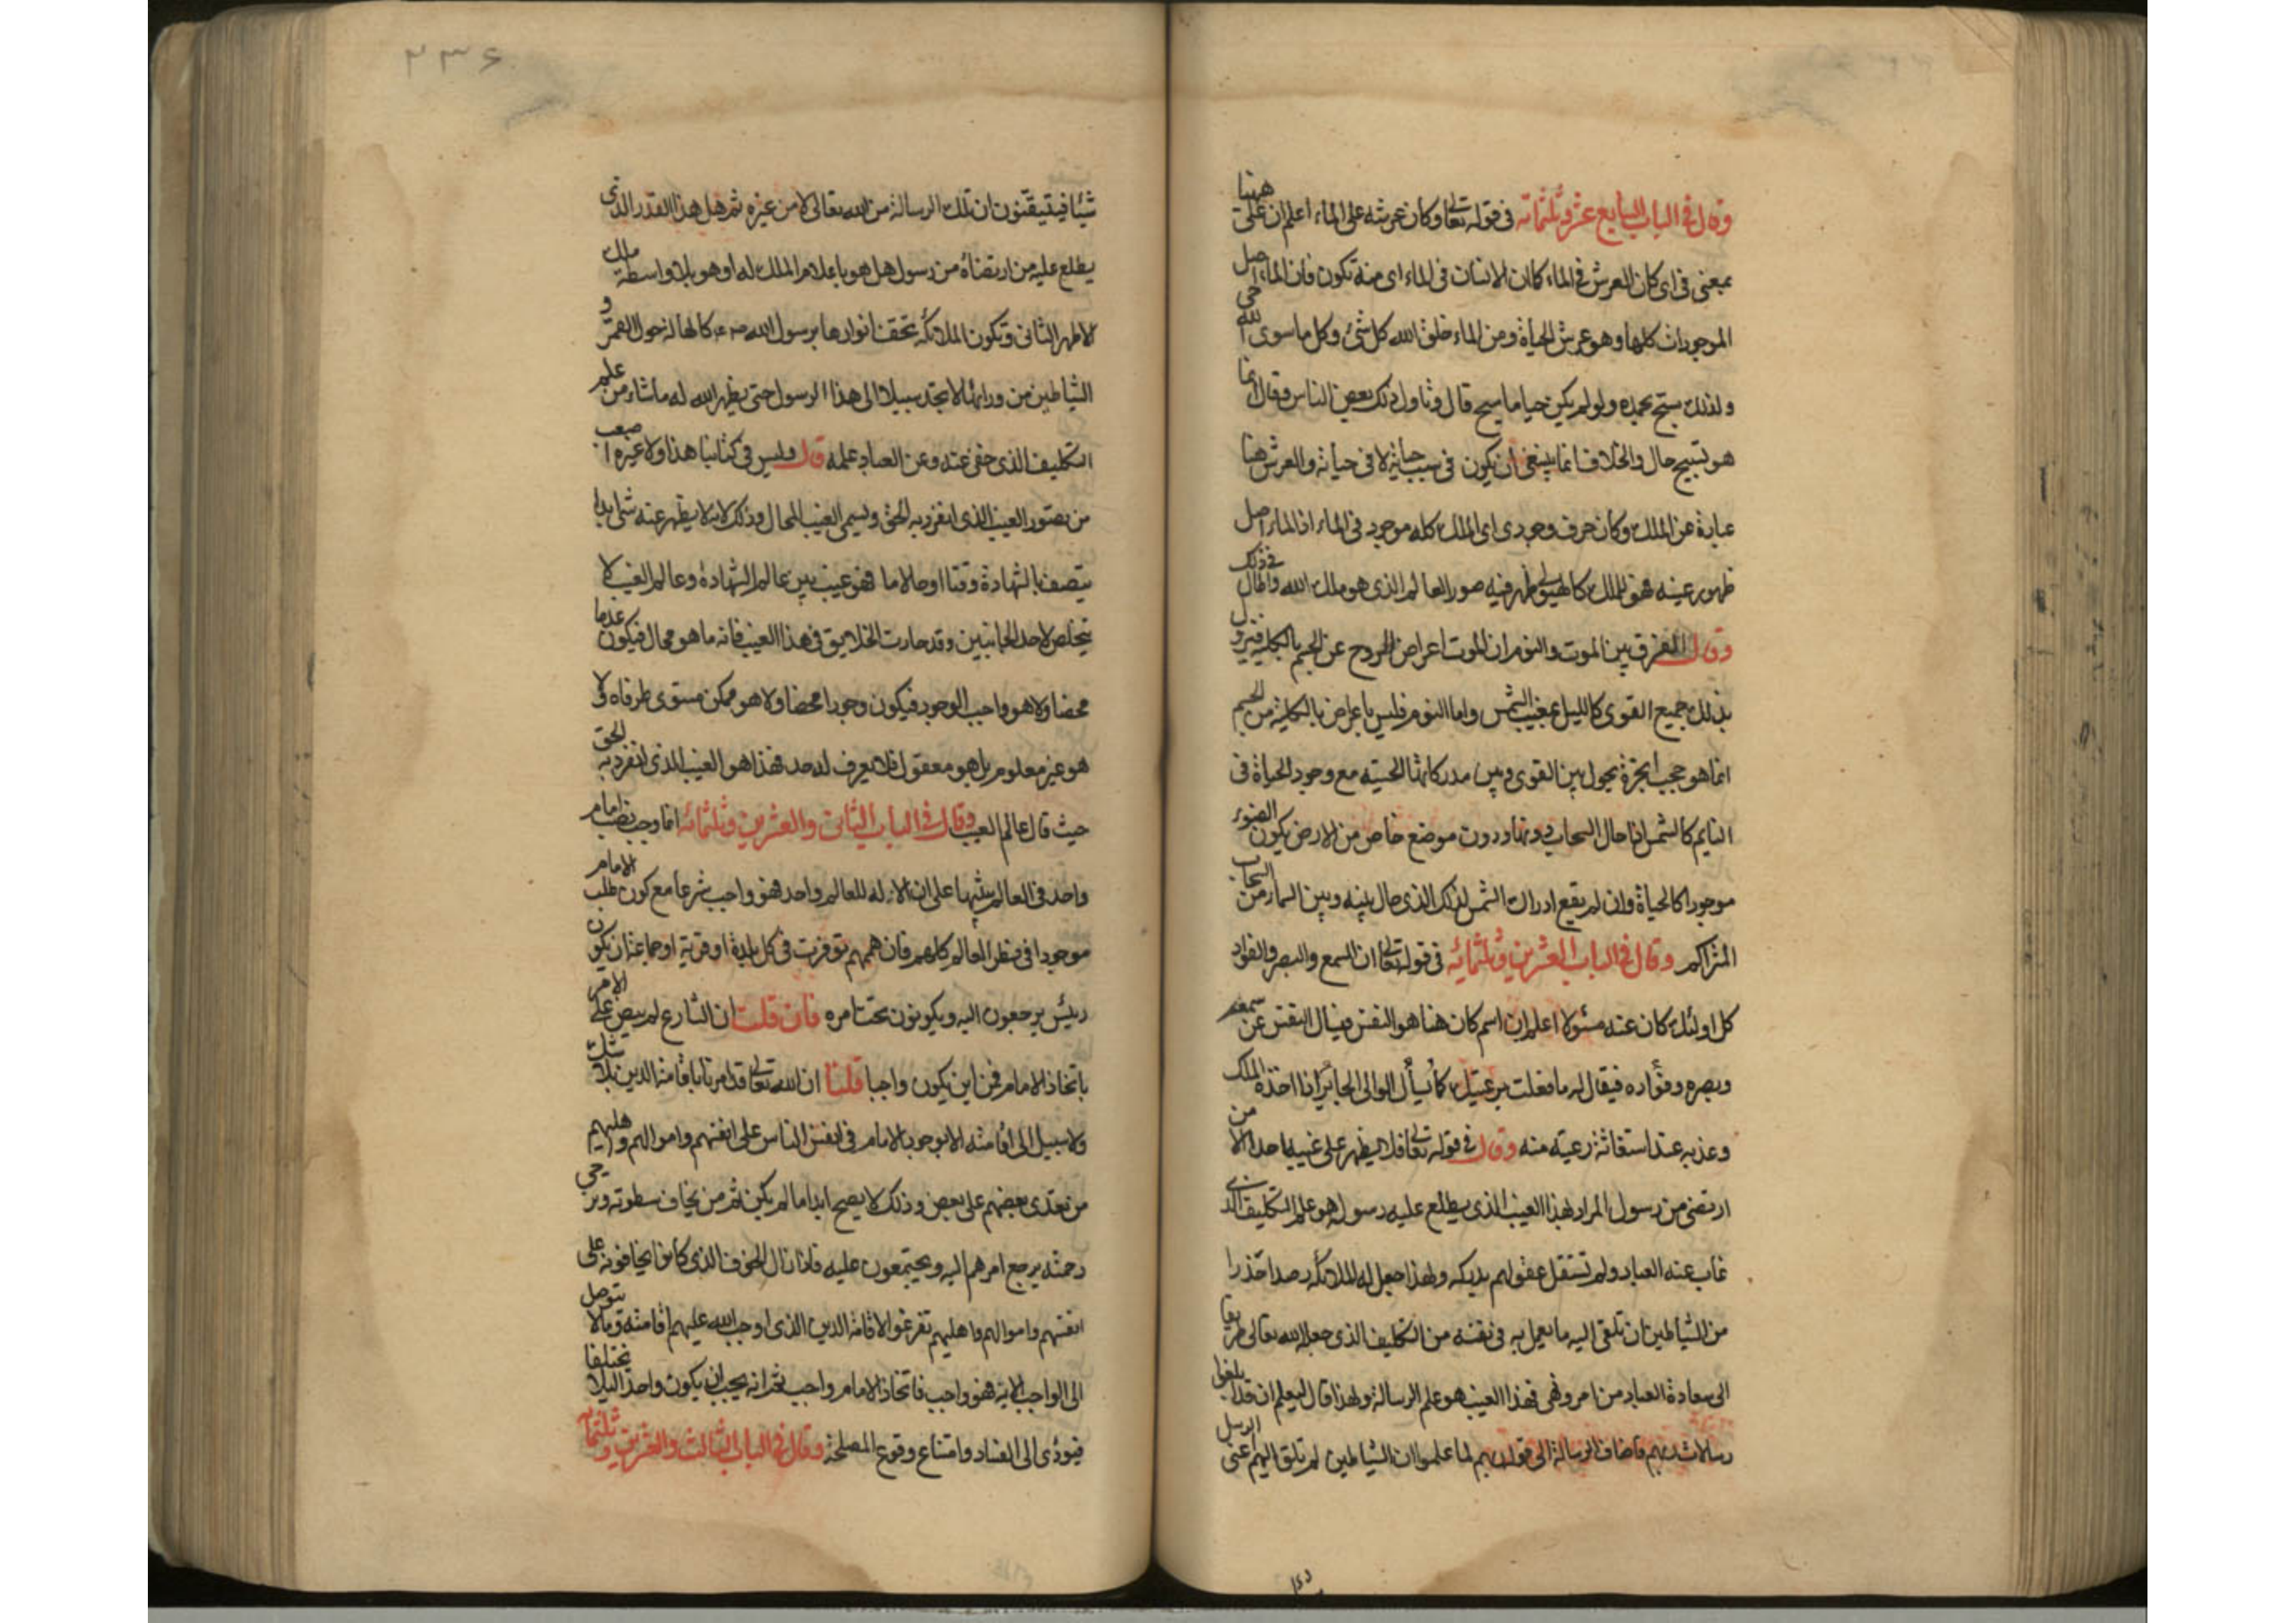 وقال في الباب السابع عشر وثلثمائة في قوله تعالى وكان عرشه على الماء اعلم ان على ههنا
بمعنى في اى كان العرش في الماء كما ان الانسان في الماء اى منه تكون فان الماء اصل
الموجودات كلها وهو عرش الحياة ومن الماء خلق الله كل شئ وكل ما سوى الله حى
ولذلك يسبح بحمده ولو لم يكن حيا ما سبح قال وتاول ذلك بعض الناس وقال انما
هو تسبيح حال والخلاف انما ينبغى ان يكون في سبب حياته لا في حياته والعرش هنا
عبارة عن الملك وكان حرف وجودى اى الملك كله موجود في الماء اذ الماء اصل
ظهور عينه فهو للملك كالهيولى ظهر فيه صور العالم الذى هو ملك الله واطال في ذلك
وقال الفرق بين الموت والنوم ان الموت اعراض الروح عن الجسم بالكلية فيزول
بذلك جميع القوى كالليل بمغيب الشمس واما النوم فليس باعراض بالكلية من الجسم
انما هو حجب ابخرة يحول بين القوى وبين مدركاتها الحسية مع وجود الحياة في
النايم كالشمس اذا حال السحاب دونها ودون موضع خاص من الارض يكون الضوء
موجودا كالحياة وان لم يقع ادراك الشمس لذلك الذى حال بينه وبين السماء من السحاب
المتراكم وقال في الباب العشرين وثلثمائة في قوله تعالى ان السمع والبصر والفؤاد
كل اولئك كان عنه مسئولا اعلم ان اسم كان هنا هو النفس فيسال النفس عن سمعه
وبصره وفؤاده فيقال له ما فعلت برعيتك كما يسأل الوالى الجائر اذا اخذه الملك
وعذبه عند استغاثة رعيته منه وقال في قوله تعالى فلا يظهر على غيبه احدا الا من
ارتضى من رسول المراد بهذا الغيب الذى يطلع عليه رسوله هو علم التكليف الذى
غاب عنه العباد ولم تستقل عقولهم بدركه ولهذا جعل له الملائكه رصدا حذرا
من الشياطين ان تلقى اليه ما يعمل به في نفسه من التكليف الذى جعله الله تعالى طريقا
الى سعادة العباد من امر ونهى فهذا الغيب هو علم الرسالة ولهذا قال ليعلم ان قد ابلغوا
رسالات ربهم فاضاف الرسالة الى قوله ربهم لما علموا ان الشياطين لم تلق اليهم اعنى الرسل
٢٣٦
شيئا فيتيقنون ان تلك الرسالة من الله تعالى لا من غيره ثم هل هذا القدر الذى
يطلع عليه من ارتضاه من رسول هل هو باعلام الملك له او هو بلا واسطة ملك
الاظهر الثانى وتكون الملائكه تحف انوارها برسول الله كالهالة حول القمر و
الشياطين من ورائها لا تجد سبيلا الى هذا الرسول حتى يظهر الله له ما شاء من علم
التكليف الذى خفى عنه وعن العباد علمه قال وليس في كتابنا هذا ولا غيره اصعب
من تصور الغيب الذى انفرد به الحق ويسمى الغيب المحال وذلك لانه لا يظهر عنه شئ ابدا
يتصف بالشهادة وقتا او حالا ما فهو غيب بين عالم الشهادة وعالم الغيب لا
يتخلص لاحد الجانبين وقد حارت الخلايق في هذا الغيب فانه ما هو محال فيكون عدما
محضا ولا هو واجب الوجود فيكون وجودا محضا ولا هو ممكن مستوى طرفاه ولا
هو غير معلوم بل هو معقول فلا يعرف له حد فهذا هو الغيب الذى انفرد به الحق
حيث قال عالم الغيب وقال في الباب الثانى والعشرين وثلثمائه انما وجب نصب امام
واحد في العالم تنبيها على ان الاله للعالم واحد فهو واجب شرعا مع كون طلب الامام
موجودا في فطر العالم كلهم فان هممهم توفرت في كل بلدة او قرية او جماعة ان يكون
رئيس يرجعون اليه ويكونون تحت امره فان قلت ان الشارع لم ينص على الامر
باتخاذ الامام فمن اين يكون واجبا قلنا ان الله تعالى قد امرنا باقامة الدين بلا شك
ولا سبيل الى اقامته الا بوجود الامام في انفس الناس على انفسهم واموالهم واهليهم
من تعدى بعضهم على بعض وذلك لا يصح ابدا ما لم يكن ثم من يخاف سطوته ويرجى
رحمته يرجع امرهم اليه ويجتمعون عليه فاذا زال الخوف الذى كانوا يخافونه على
انفسهم واموالهم واهليهم تفرغوا لاقامة الدين الذى اوجب الله عليهم اقامته وما لا يتوصل
الى الواجب الا به فهو واجب فاتخاذ الامام واجب ثم انه يجب ان يكون واحدا ليلا يختلفا
فيؤدى الى الفساد وامتناع وقوع المصلحة وقال في الباب الثالث والعشرين وثلثمائه